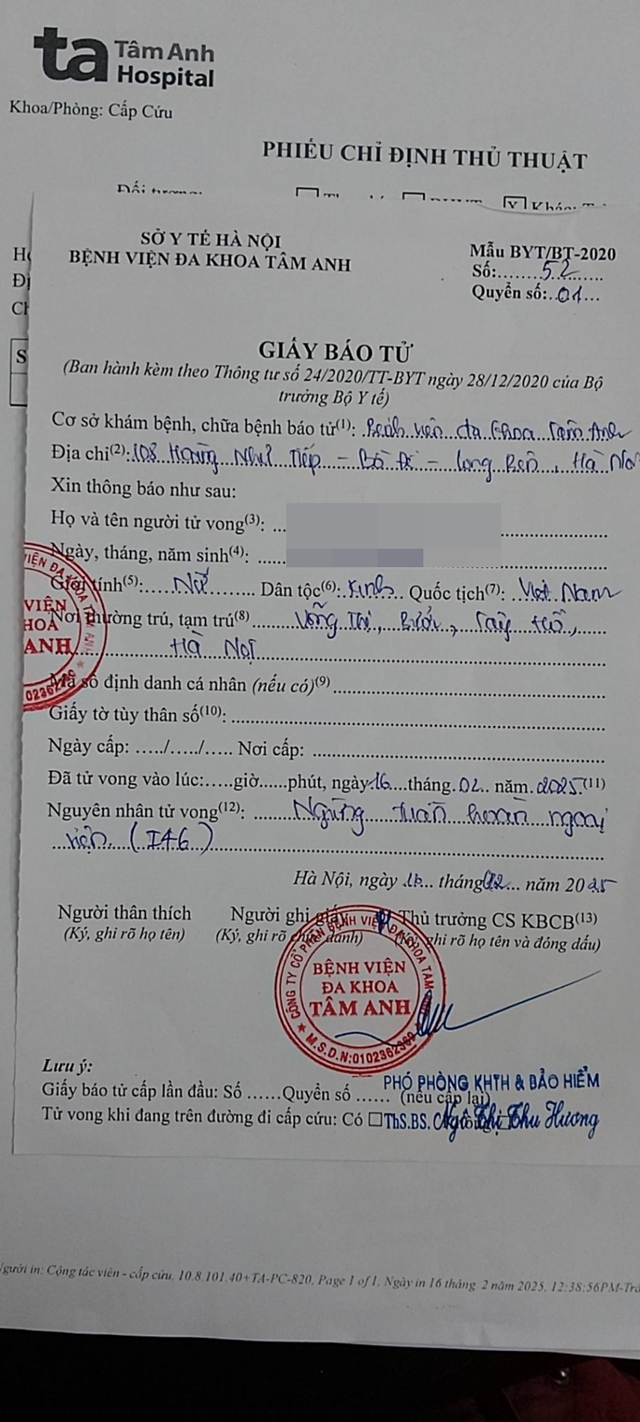 ta TâmAnh
Hospital
Khoa/Phòng: Cấp Cứu
PHIẾU CHỈ ĐỊNH THỦ THUẬT
SỞ Y TẾ HÀ NỘI
BỆNH VIỆN ĐA KHOA TÂM ANH
Mẫu BYT/BT-2020
Số:.......52..........
Quyển số:..01...
GIẤY BÁO TỬ
(Ban hành kèm theo Thông tư số 24/2020/TT-BYT ngày 28/12/2020 của Bộ
trưởng Bộ Y tế)
Cơ sở khám bệnh, chữa bệnh báo tử(1): Bệnh viện đa khoa Tâm Anh
Địa chỉ(2): 108 Hoàng Như Tiếp – Bồ Đề – Long Biên, Hà Nội
Xin thông báo như sau:
Họ và tên người tử vong(3): ..
Ngày, tháng, năm sinh(4): ......
Giới tính(5):..... Nữ ........ Dân tộc(6): Kinh.. Quốc tịch(7): Việt Nam
Nơi thường trú, tạm trú(8) Võng Thị, Bưởi, Tây Hồ,
Hà Nội
Mã số định danh cá nhân (nếu có)(9)
Giấy tờ tùy thân số(10):
Ngày cấp: ...../...../..... Nơi cấp:
Đã tử vong vào lúc:.....giờ......phút, ngày 16 ...tháng. 02.. năm. 2025.(11)
Nguyên nhân tử vong(12): Ngừng tuần hoàn ngoại
viện. (I46)
Hà Nội, ngày 16... tháng 02... năm 2025
Người thân thích Người ghi giấy Thủ trưởng CS KBCB(13)
(Ký, ghi rõ họ tên) (Ký, ghi rõ chức danh) (Ký, ghi rõ họ tên và đóng dấu)
VIỆN ĐA KHOA
VIỆN
KHOA
ANH
CÔNG TY CỔ PHẦN BỆNH VIỆN ĐA KHOA TÂM ANH
BỆNH VIỆN
ĐA KHOA
TÂM ANH
M.S.D.N:0102362369
Lưu ý:
Giấy báo tử cấp lần đầu: Số ......Quyển số ...... (nếu cấp lại)
PHÓ PHÒNG KHTH & BẢO HIỂM
Tử vong khi đang trên đường đi cấp cứu: Có ☐
ThS.BS. Ngô Thị Thu Hương
Người in: Cộng tác viên - cấp cứu, 10.8.101.40+TA-PC-820, Page 1 of 1, Ngày in 16 tháng 2 năm 2025, 12:38:56PM-Tr